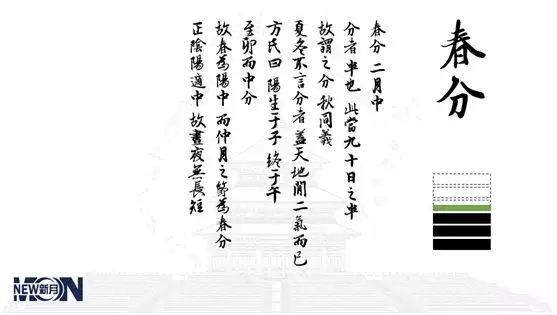 春分
春分 二月中
分者 半也 此當九十日之半
故謂之分 秋同義
夏冬不言分者 蓋天地間二氣而已
方氏曰 陽生于子 終于午
至卯而中分
故春為陽中 而仲月之節為春分
正陰陽適中 故晝夜無長短
NEW新月
MOON